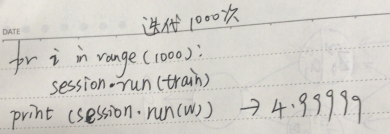 迭代 1000次
DATE
for i in range (1000):
session.run(train)
print (session.run(w)) → 4.99999